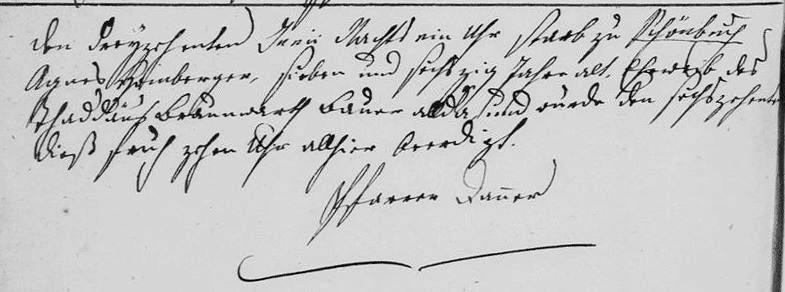 den dreyzehenten Junii Nachts ein Uhr starb zu Schönbuch
Agnes Bamberger, sieben und sechszig Jahre alt, Eheweib des
Thaddäus Braunwarth Bauer allda, und wurde den sechszehenten
dieß fruh zehen Uhr allhier beerdigt.
Pfarrer Danner